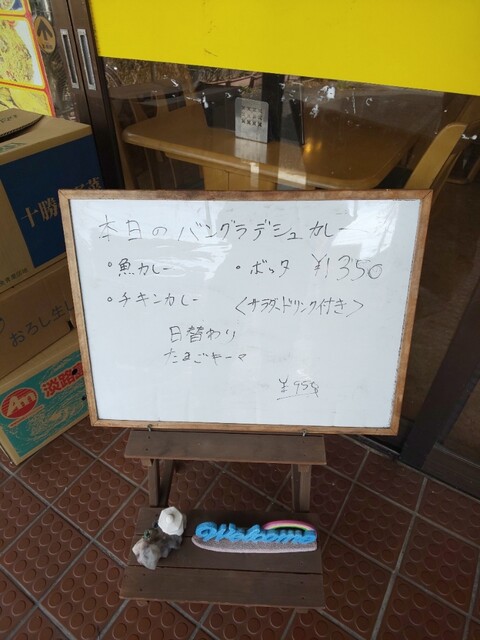 本日のバングラデシュカレー
・魚カレー ・ボッタ ¥1350
・チキンカレー <サラダ、ドリンク付き>
日替わり
たまごキーマ
¥950
十勝
おろし生し
淡路
Welcome